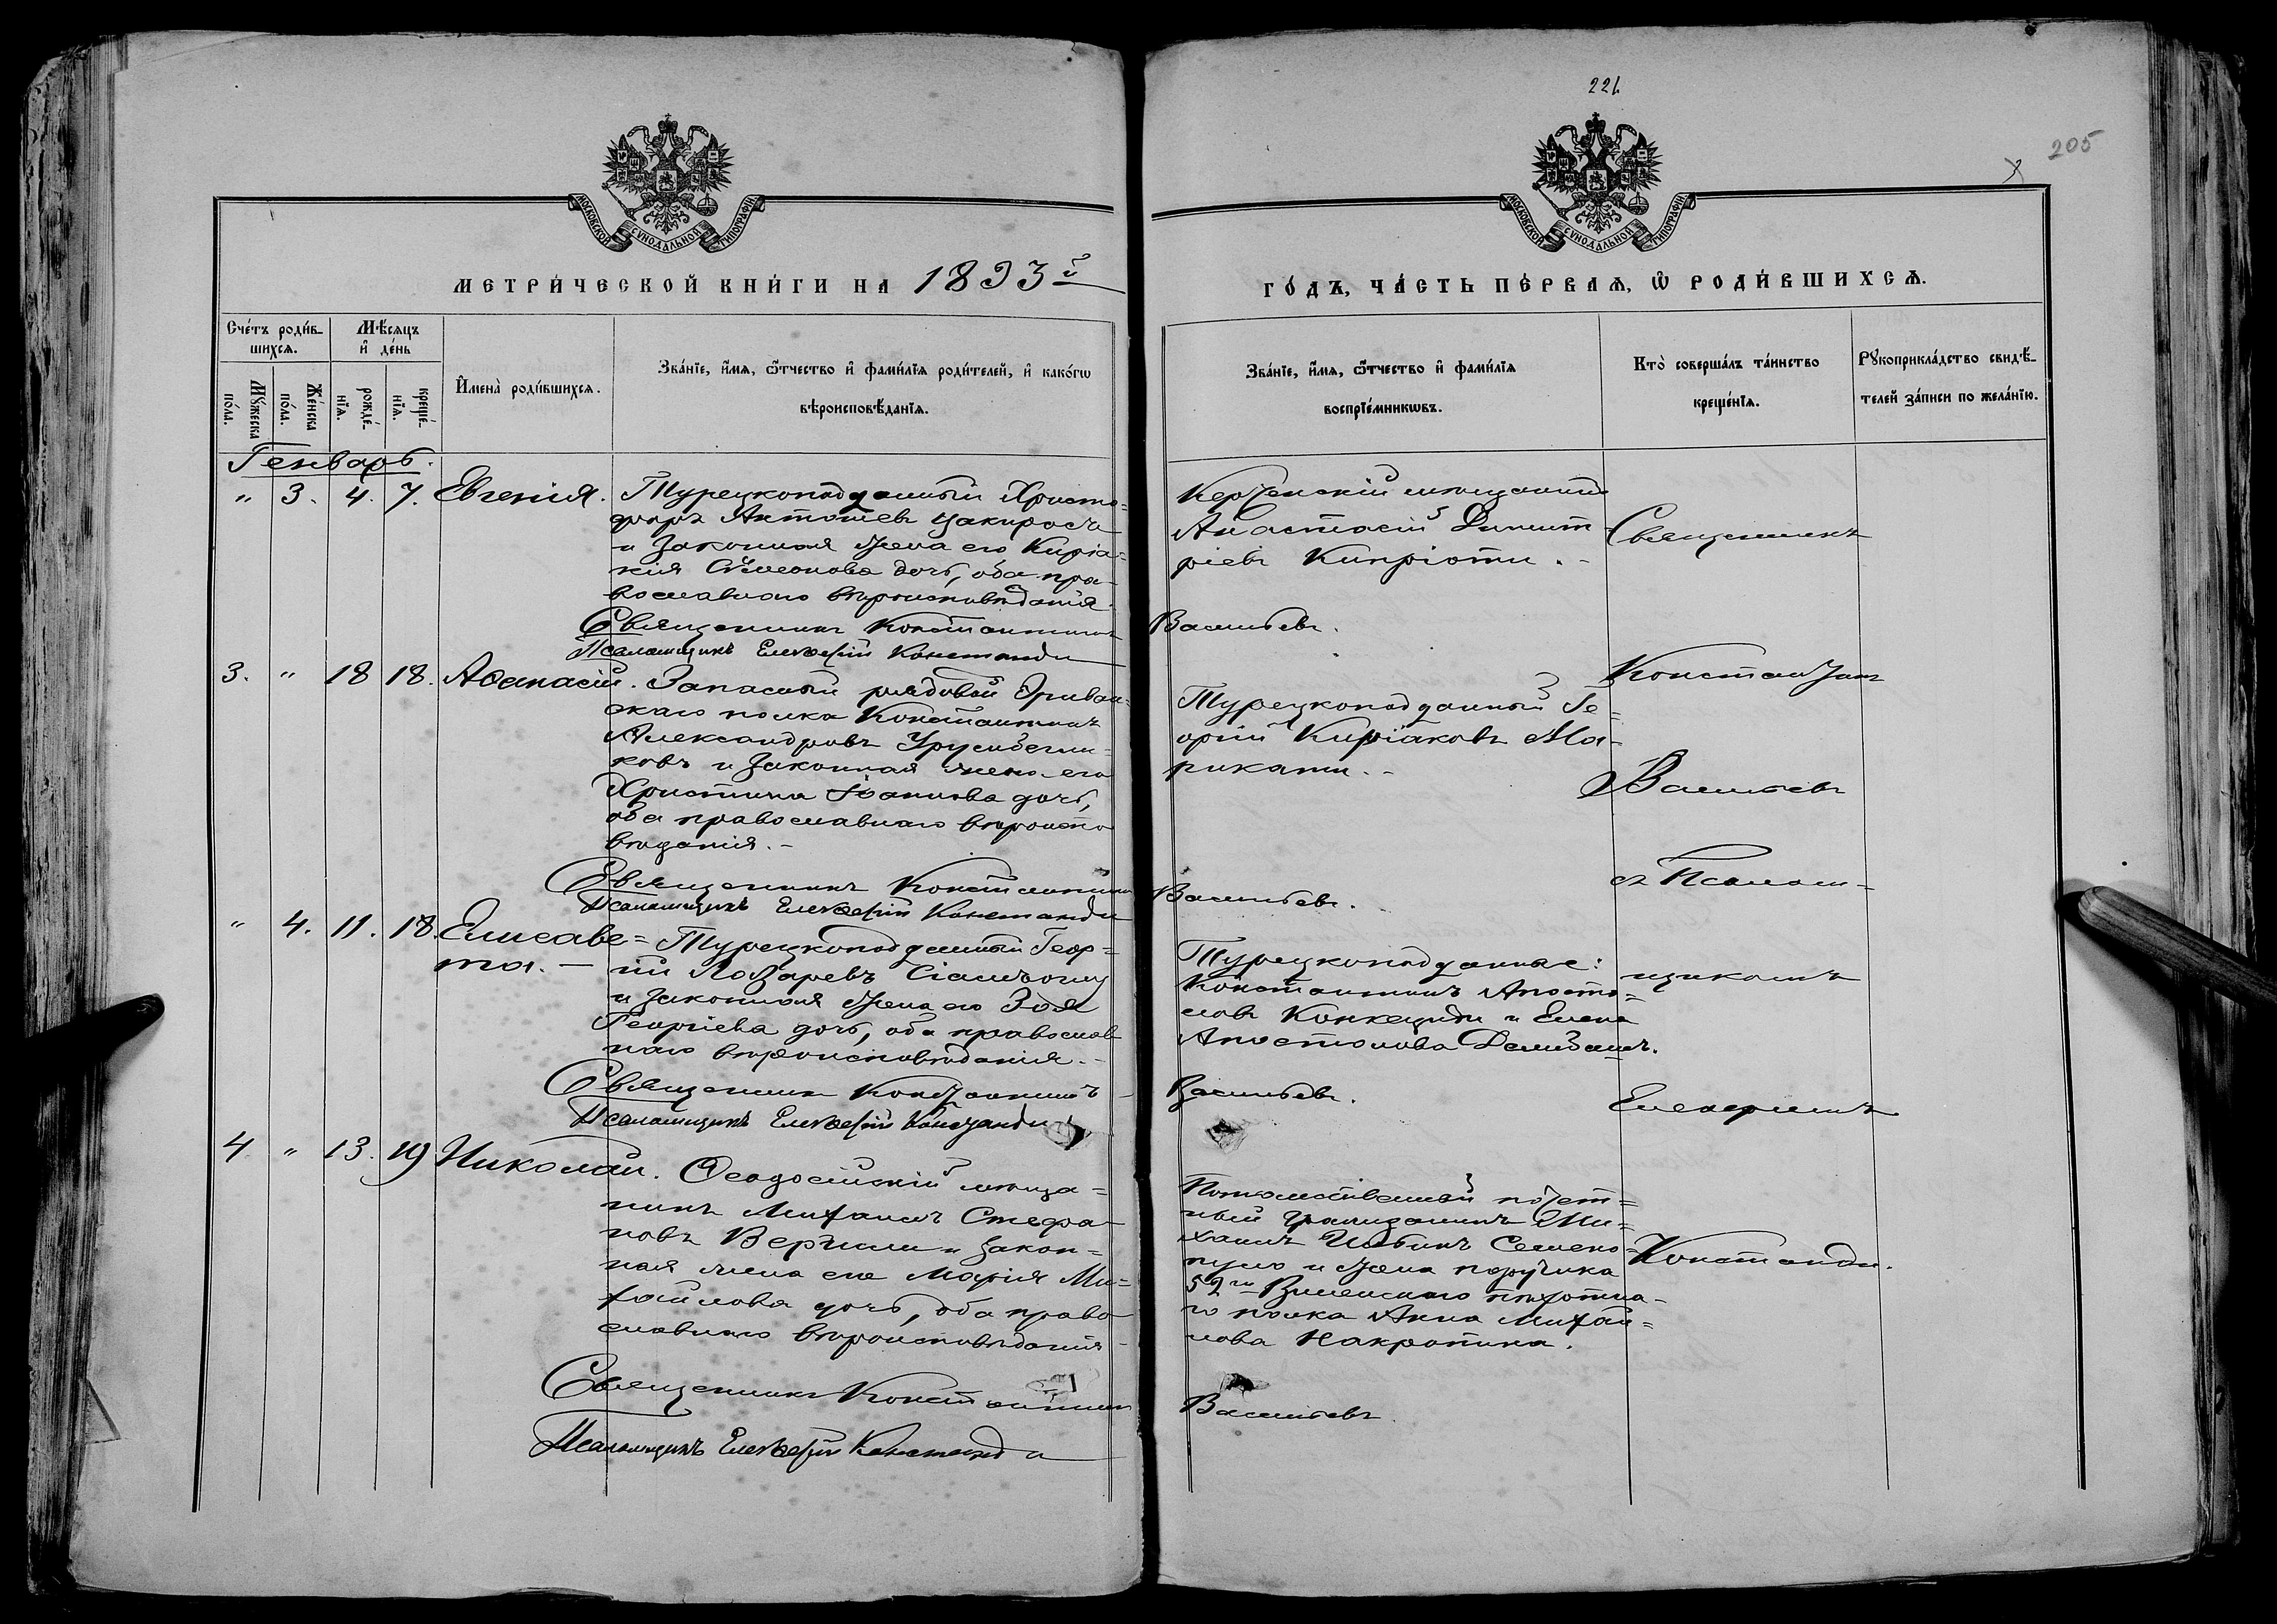 221
205
МОСКОВСКОЙ СУНОДАЛЬНОЙ ТИПОГРАФІИ
МОСКОВСКОЙ СУНОДАЛЬНОЙ ТИПОГРАФІИ
МЕТРИ́ЧЕСКОЙ КНИ́ГИ НА 1893й
ГО́ДЪ, ЧА́СТЬ ПЕ́РВАѦ, Ѿ РОДИ́ВШИХСѦ.
Сче́тъ роди́в-
шихсѧ.
Мѣ́сѧцъ
и҆ де́нь
Мꙋ́жеска
по́ла.
Же́нска
по́ла.
рожде́-
нїѧ.
креще́-
нїѧ.
И҆мена̀ роди́вшихсѧ.
Зва́нїе, и҆́мѧ, ѻ҆́тчество и҆ фами́лїѧ роди́телей, и҆ како́гѡ
вѣроисповѣ́данїѧ.
Зва́нїе, и҆́мѧ, ѻ҆́тчество и҆ фами́лїѧ
воспрїе́мникѡвъ.
Кто̀ соверша́лъ та́инство
креще́нїѧ.
Рꙋкоприкла́дство свидѣ́-
телей за́писи по жела́нїю.
Генварь.
" 3. 4. 7. Евгенія.
Турецкоподданный Христо=
форъ Антоніевъ
и законная жена его Киріа=
кія Сѵмеонова дочь, оба пра-
вославнаго вѣроисповѣданія.
Священникъ Константинъ
Псаломщикъ Елевѳерій Константи
Керченскій мѣщанинъ
Анастасій Димит
ріевъ Кипріоти.
Васильевъ.
Священникъ
3. " 18 18. Аѳанасій.
Запасный рядовой Эриван=
скаго полка Константинъ
Александровъ
ковъ и законная жена его
Христина Іоаннова дочь,
оба православнаго вѣроиспо
вѣданія.
Священникъ Константинъ
Псаломщикъ Елевѳерій Константи
Турецкоподданный Ге=
оргій Киріаковъ Ма-
рикати.
Васильевъ.
Константинъ
Васильевъ
съ Псалом-
" 4. 11. 18. Елисаве=
та.
Турецкоподданный Геор=
гій Лазаревъ
и законная жена его Зоя
Георгіева дочь, оба православ
наго вѣроисповѣданія.
Священникъ Константинъ
Псаломщикъ Елевѳерій Константи
Турецкоподданные:
Константинъ Апосто=
ловъ и Елена
Апостолова
Васильевъ.
щикомъ
Елевѳеріемъ
4 " 13. 19 Николай.
Ѳеодосійскій мѣща=
нинъ Михаилъ Стефа-
новъ и закон=
ная жена его Марія Ми=
хайлова дочь, оба право
славнаго вѣроисповѣданія
Священникъ Константинъ
Псаломщикъ Елевѳерій Константи
Потомственный почет=
ный гражданинъ Ми=
хаилъ Ильинъ Семено=
пуло и жена поручика
52го Виленскаго пѣхотна-
го полка Анна Михай=
лова Накропина.
Васильевъ
Константи.